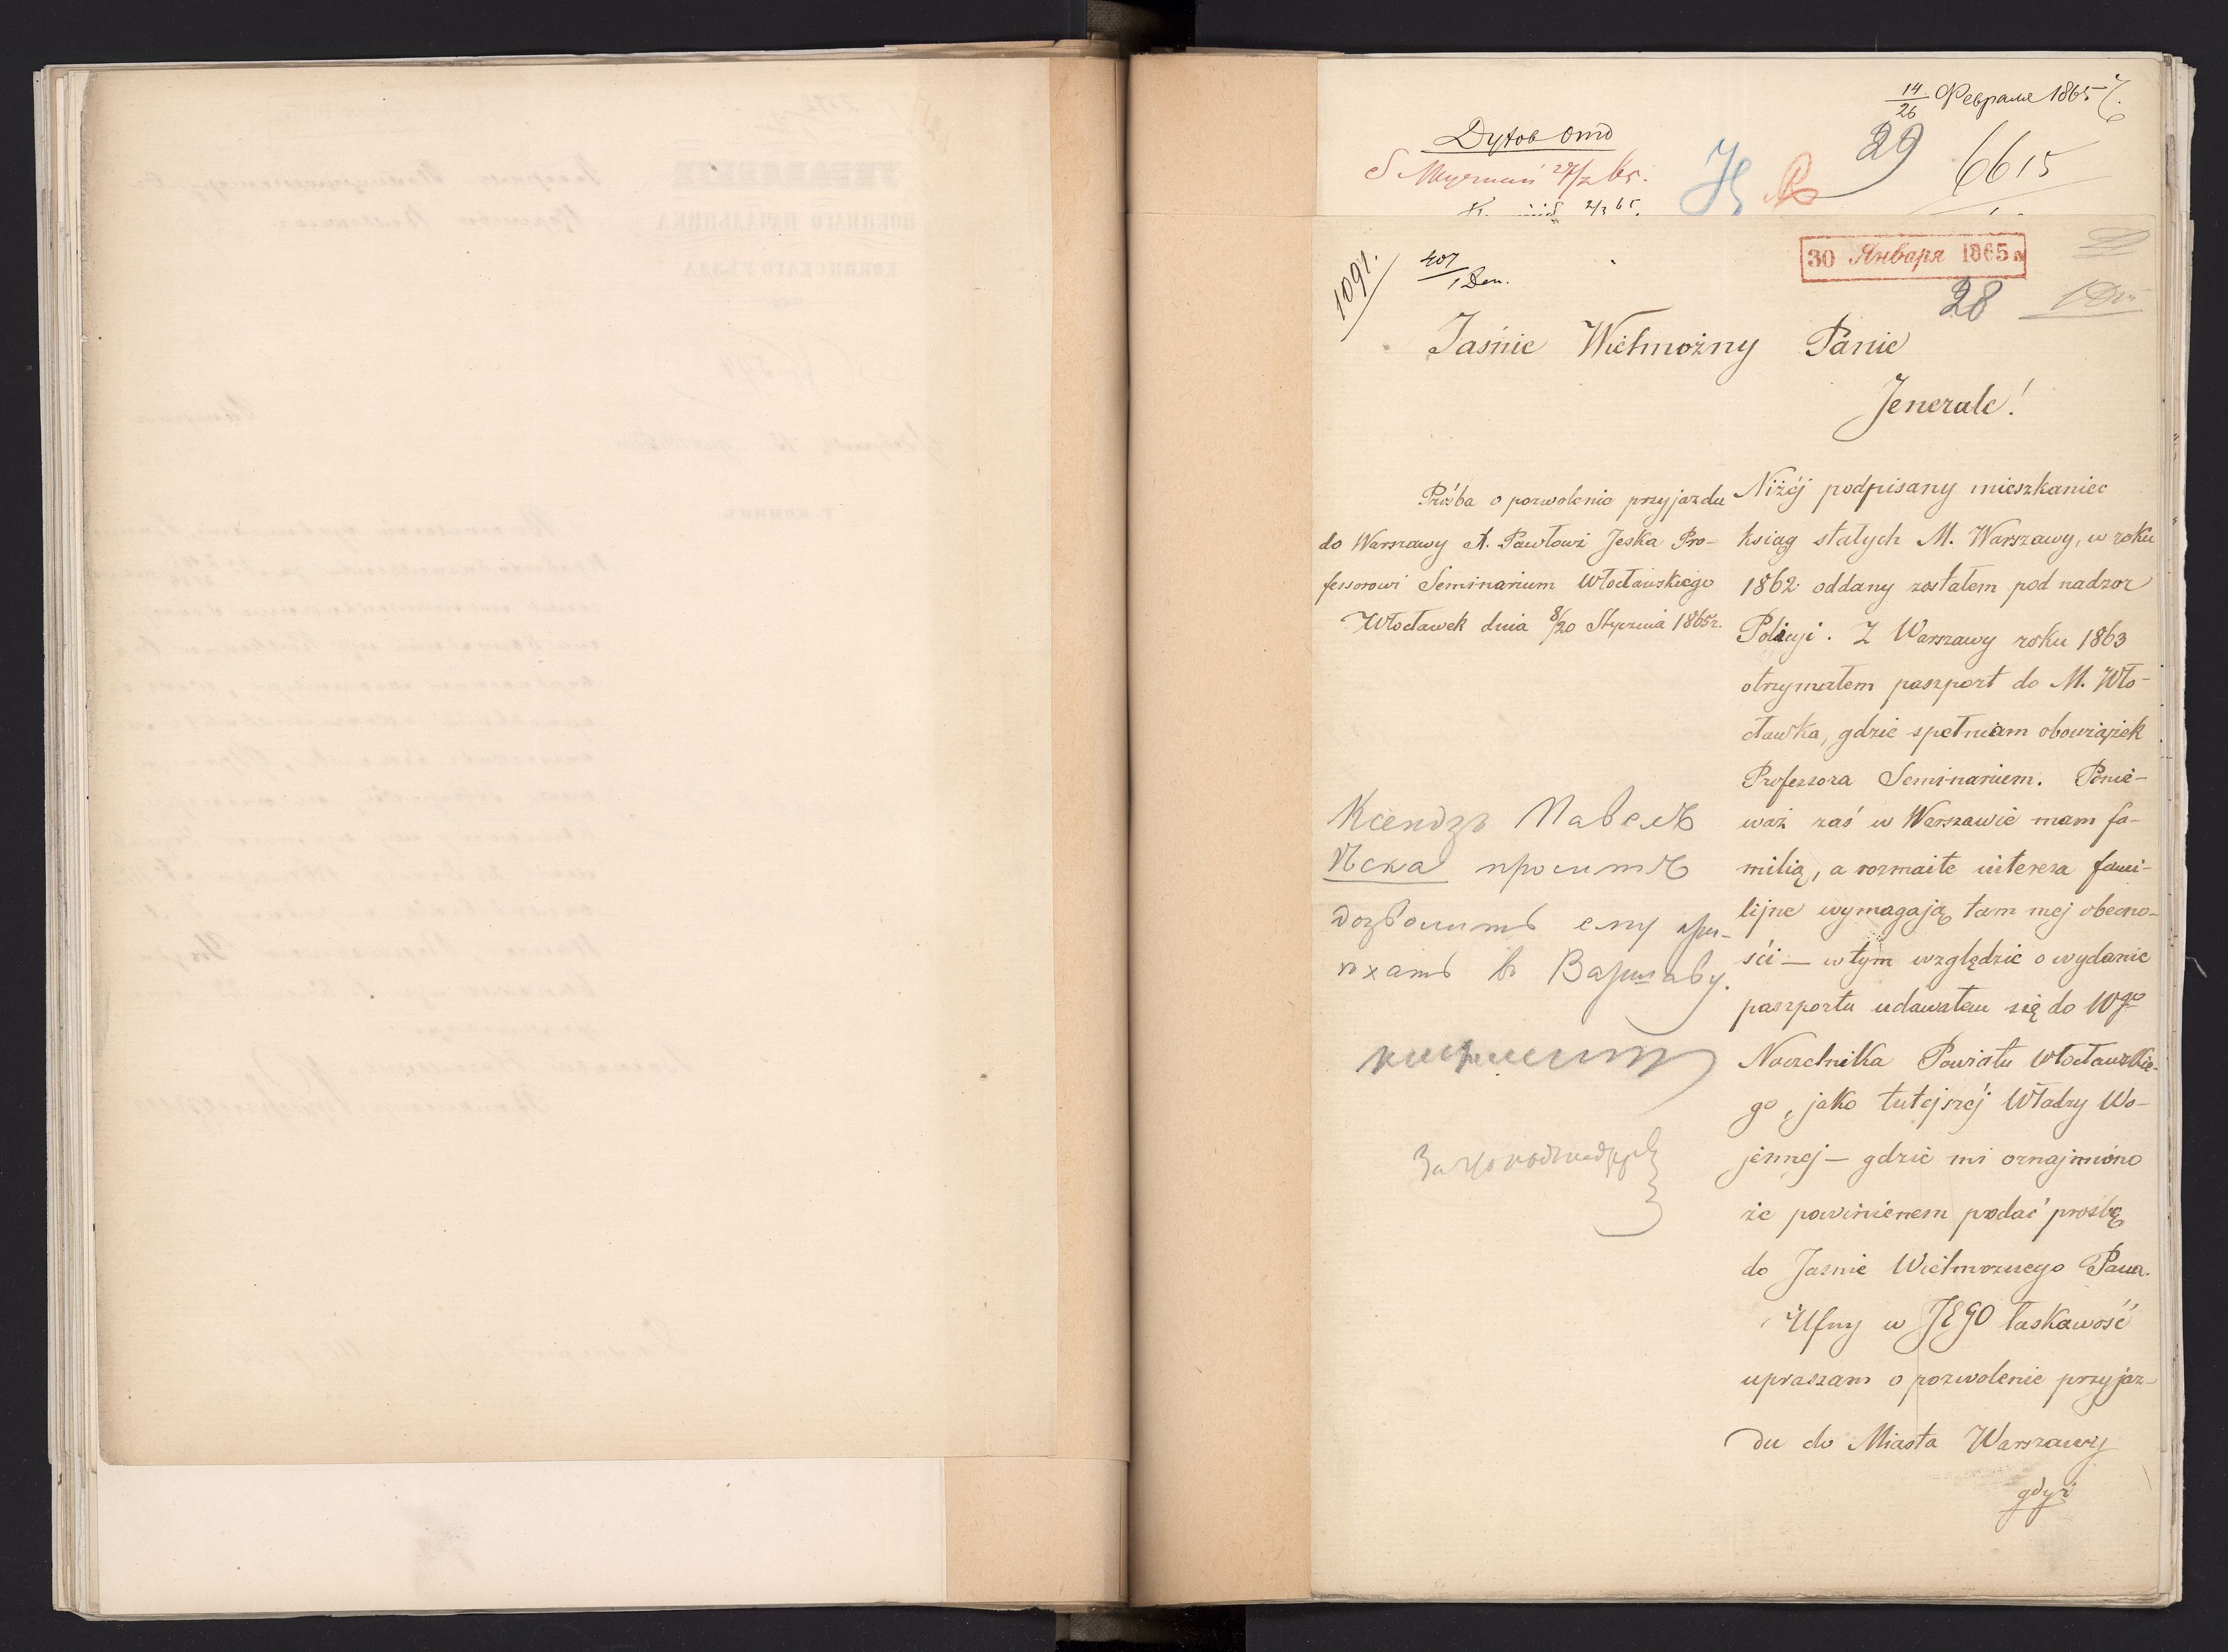 14/26 Февраля 1865 г.
Духов отд
29
6615
30 Января 1865
1091.
407
28
Jaśnie Wielmożny Panie
Jenerale!
Prośba o pozwolenie przyjazdu
do Warszawy X. Pawłowi Jeska Pro-
fessorowi Seminarium Włocławskiego
Włocławek dnia 8/20 Stycznia 1865 r.
Ксендзъ Павелъ
Ѣска проситъ
дозволить ему при-
ѣхать въ Варшаву.
Niżéj podpisany mieszkaniec
ksiąg stałych M. Warszawy, w roku
1862 oddany zostałem pod nadzor
Policyi. Z Warszawy roku 1863
otrzymałem paszport do M. Wło-
cławka, gdzie spełniam obowiązek
Professora Seminarium. Ponie-
waż zaś w Warszawie mam fa-
milią, a rozmaite interesa fami-
lijne wymagają tam mej obecno-
ści — w tym względzie o wydanie
paszportu udawałem się do Wgo
Naczelnika Powiatu Włocławskie-
go, jako tutejszéj Władzy Wo-
jennej — gdzie mi oznajmiono
że powinienem podać prośbę
do Jaśnie Wielmożnego Pana.
Ufny w JEGO łaskawość
upraszam o pozwolenie przyjaz-
du do Miasta Warszawy
gdyż